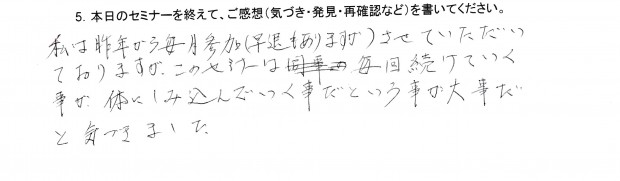 5. 本日のセミナーを終えて、ご感想（気づき・発見・再確認など）を書いてください。
私は昨年から毎月参加（早退もありますが）させていただい
ておりますが、このセミナーは毎回続けていく
事が、体にしみ込んでいく事だという事が大事だ
と気づきました